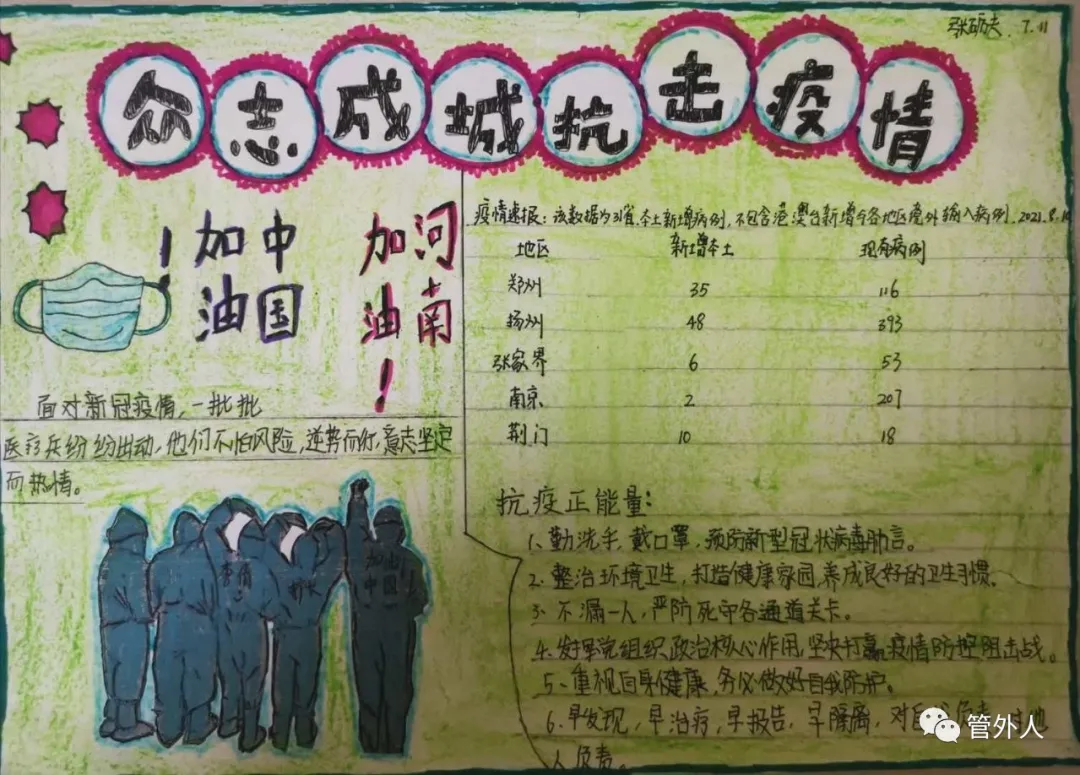 张砺夫 7.11
众志成城抗击疫情
疫情速报:该数据为31省.本土新增病例,不包含港澳台新增本各地区境外输入病例.2021.8.
地区 新增本土 现有病例
郑州 35 116
扬州 48 393
张家界 6 53
南京 2 207
荆门 10 18
中国
加油!
河南
加油!
面对新冠疫情,一批批
医疗兵纷纷出动,他们不怕风险,逆势而行,意志坚定
而热情。
李倩
加油
中国
抗疫正能量:
1、勤洗手,戴口罩,预防新型冠状病毒肺炎。
2、整治环境卫生,打造健康家园,养成良好的卫生习惯。
3、不漏一人,严防死守各通道关卡。
4、发挥党组织政治核心作用,坚决打赢疫情防控阻击战。
5、重视自身健康,务必做好自我防护。
6、早发现,早治疗,早报告,早隔离,对
人负责。
管外人